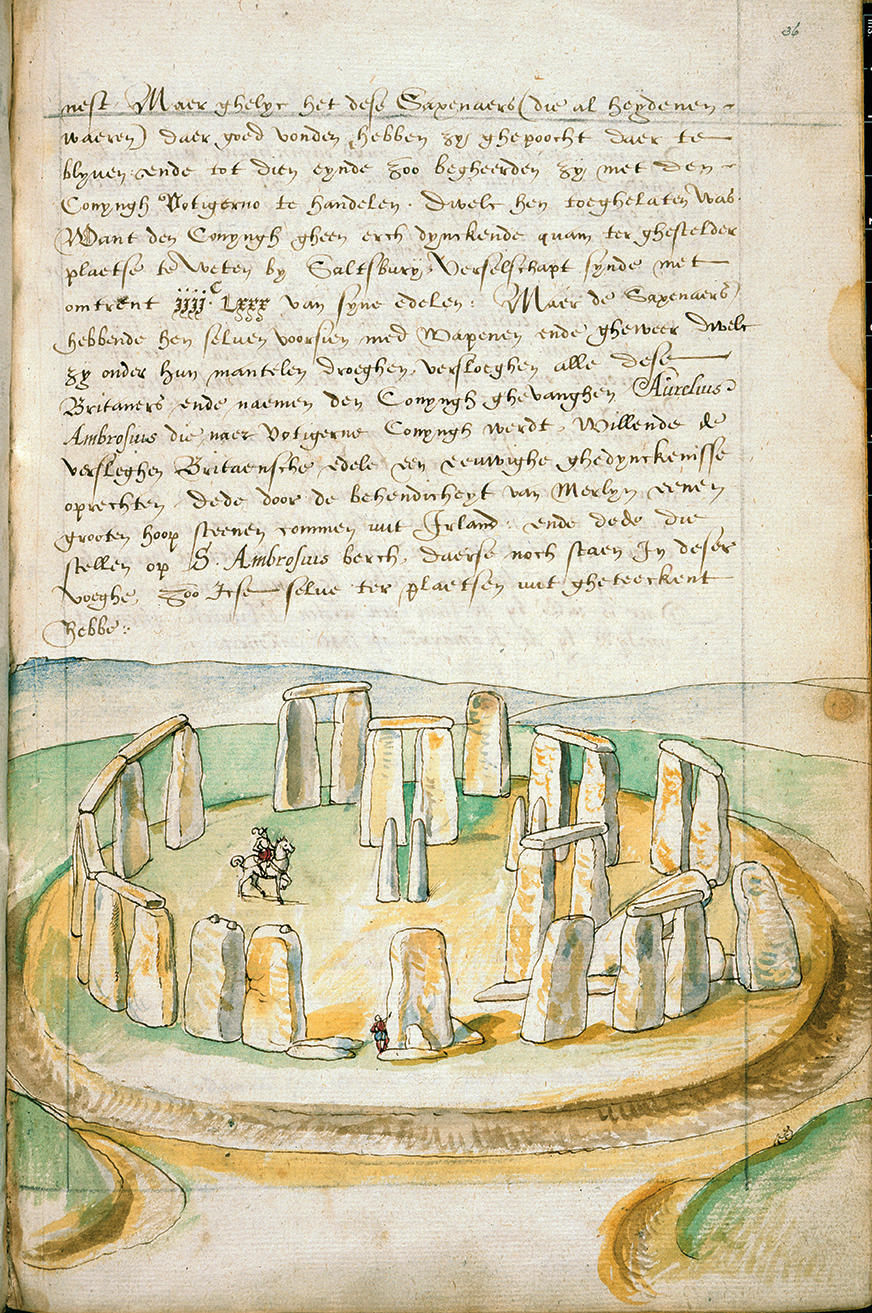 36
nest. Maer ghelyc het dese Saxenaers (die al heydenen
waeren) daer goed vonden hebben zy ghepoocht daer te
blyven ende tot dien eynde zoo begheerden zy met den
Conyngh Votigerno te handelen. dwelc hen toeghelaten was.
Want den Conyngh gheen erch dynckende quam ter ghestelder
plaetse te weten by Saltsbury, verselschapt synde met
omtrent iiij C Lxxx van syne edelen: Maer de Saxenaers
hebbende hen selven voorsien med wapenen ende gheweer dwelc
zy onder hun mantelen droeghen, versloeghen alle dese
Britaners, ende naemen den Conyngh ghevanghen Aurelius
Ambrosius die naer Votigerne Conyngh werdt, willende de
versleghen Britaensche edele een eeuwighe ghedynckenisse
oprechten, dede door de behendicheyt van Merlyn eenen
grooten hoop steenen commen uut Irland: ende dede die
stellen op S. Ambrosius berch, daerse noch staen in deser
voeghe, zoo icse selve ter plaetsen uut gheteeckent
hebbe: